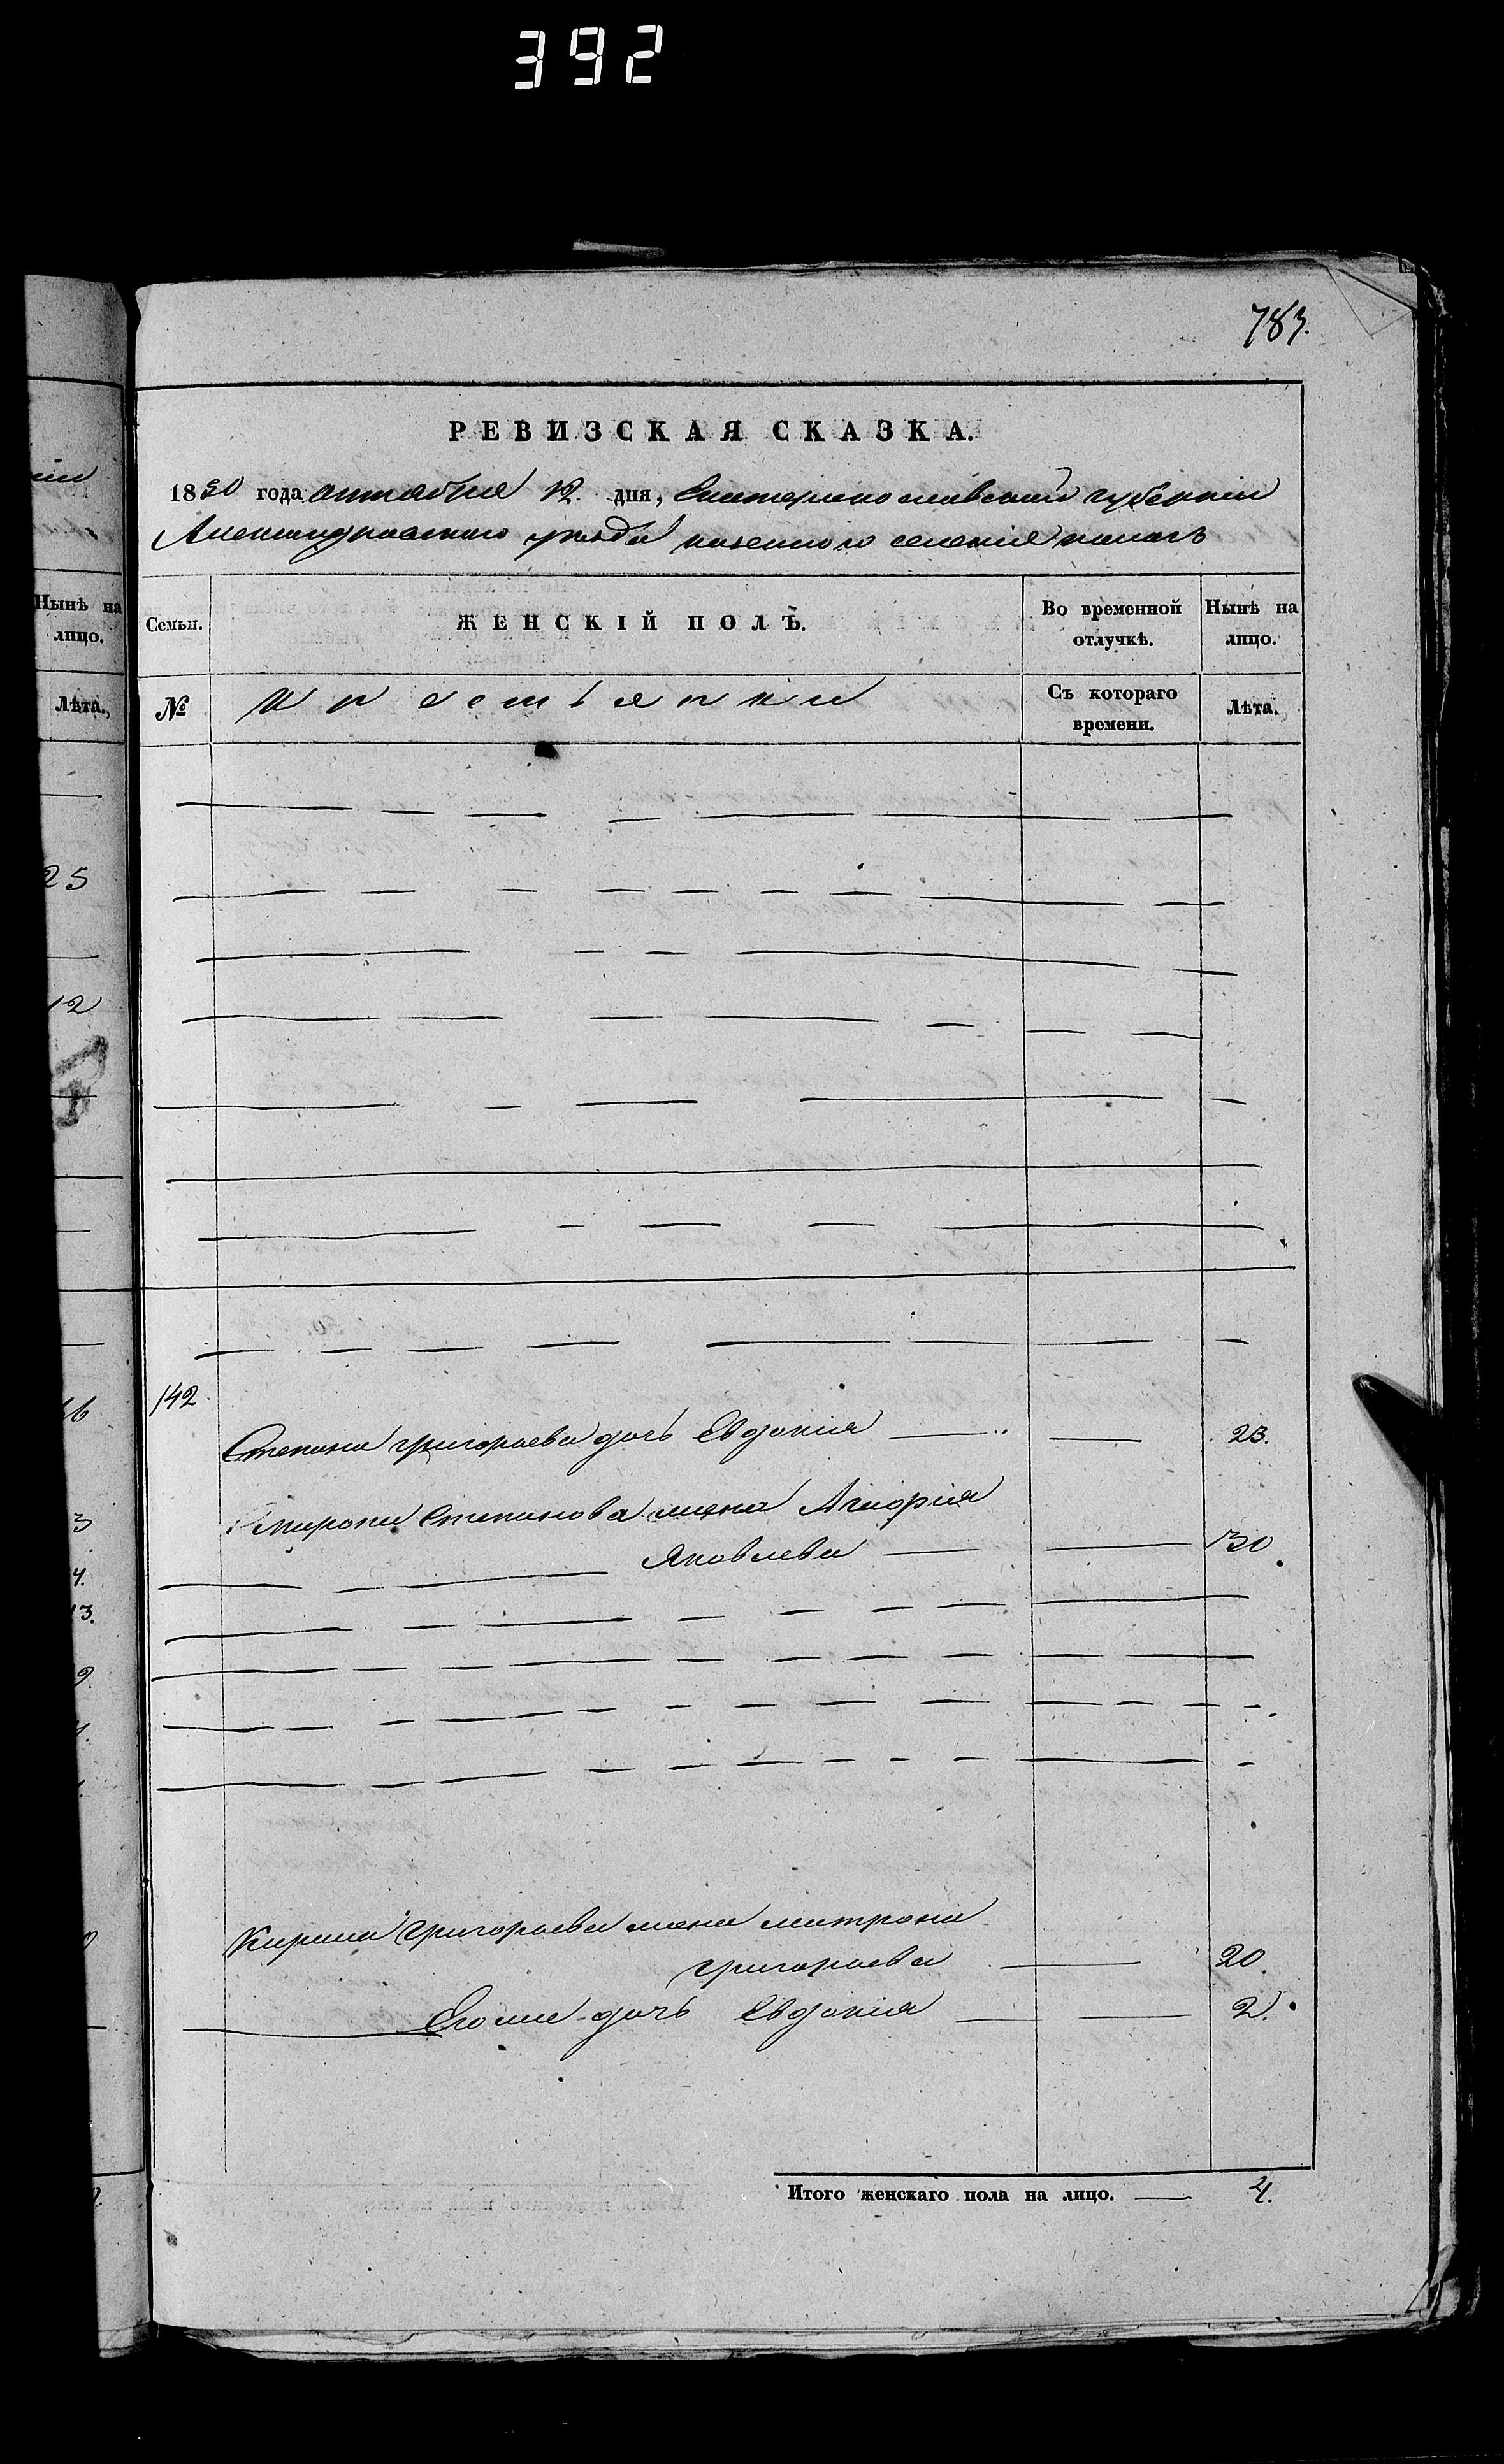 392
783.
РЕВИЗСКАЯ СКАЗКА.
1850 года октября 12 дня, Екатеринославской губернии
Александровского уезда казенного селения
Семьи.
ЖЕНСКІЙ ПОЛЪ.
Во временной отлучкѣ.
Нынѣ на лицо.
№
крестьянки
Съ котораго времени.
Лѣта.
142
Степана Григорьева дочь Евдокия 23.
Мирона Степанова жена
Яковлева 30
Кирила Григорьева жена Матрона
Григорьева 20.
Его же дочь Евдокия 2.
Итого женскаго пола на лицо. 4.
Нынѣ на
лицо.
Лѣта.
25
12